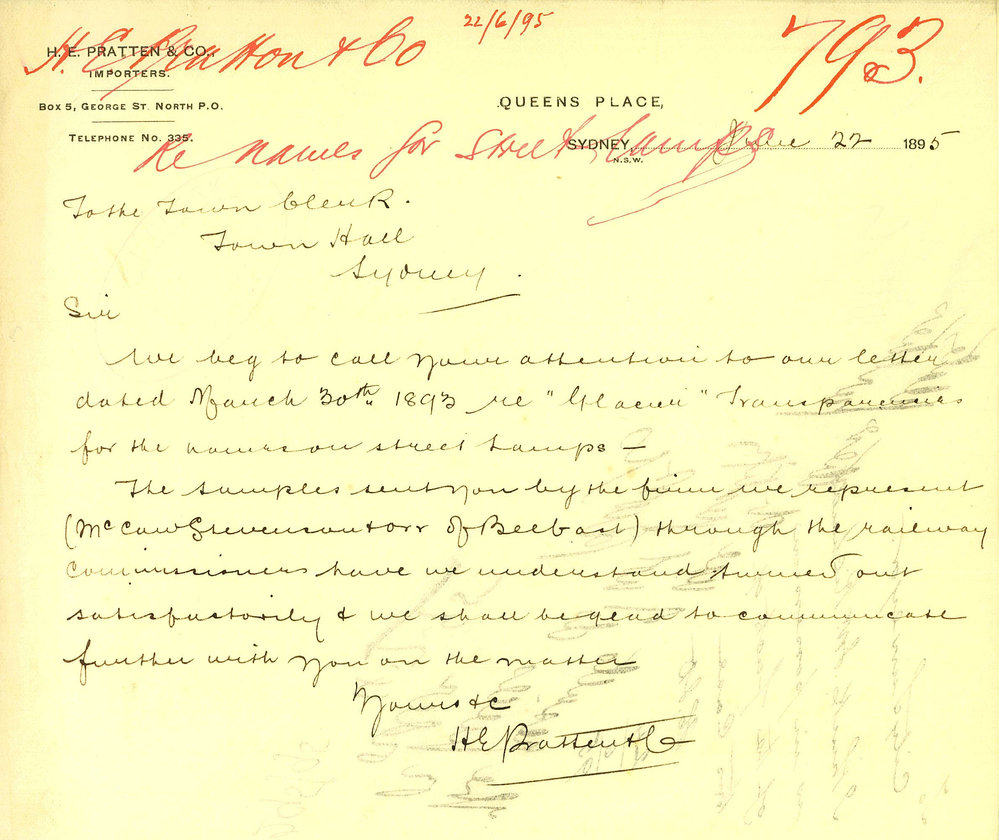 22/6/95
793.
H. E. Pratten & Co
H. E. PRATTEN & CO.,
IMPORTERS.
BOX 5, GEORGE ST. NORTH P.O.
TELEPHONE NO. 335.
QUEENS PLACE,
SYDNEY, June 22 1895
N.S.W.
Re names for Street Lamps
To the Town Clerk.
Town Hall
Sydney.
Sir
We beg to call your attention to our letter
dated March 30th 1893 re "Glacier" Transparencies
for the names on street Lamps –
The samples sent you by the firm we represent
(McCaw Stevenson & Orr of Belfast) through the railway
Commissioners have we understand turned out
satisfactorily & we shall be glad to communicate
further with you on the matter
Yours &c
H E Pratten & Co